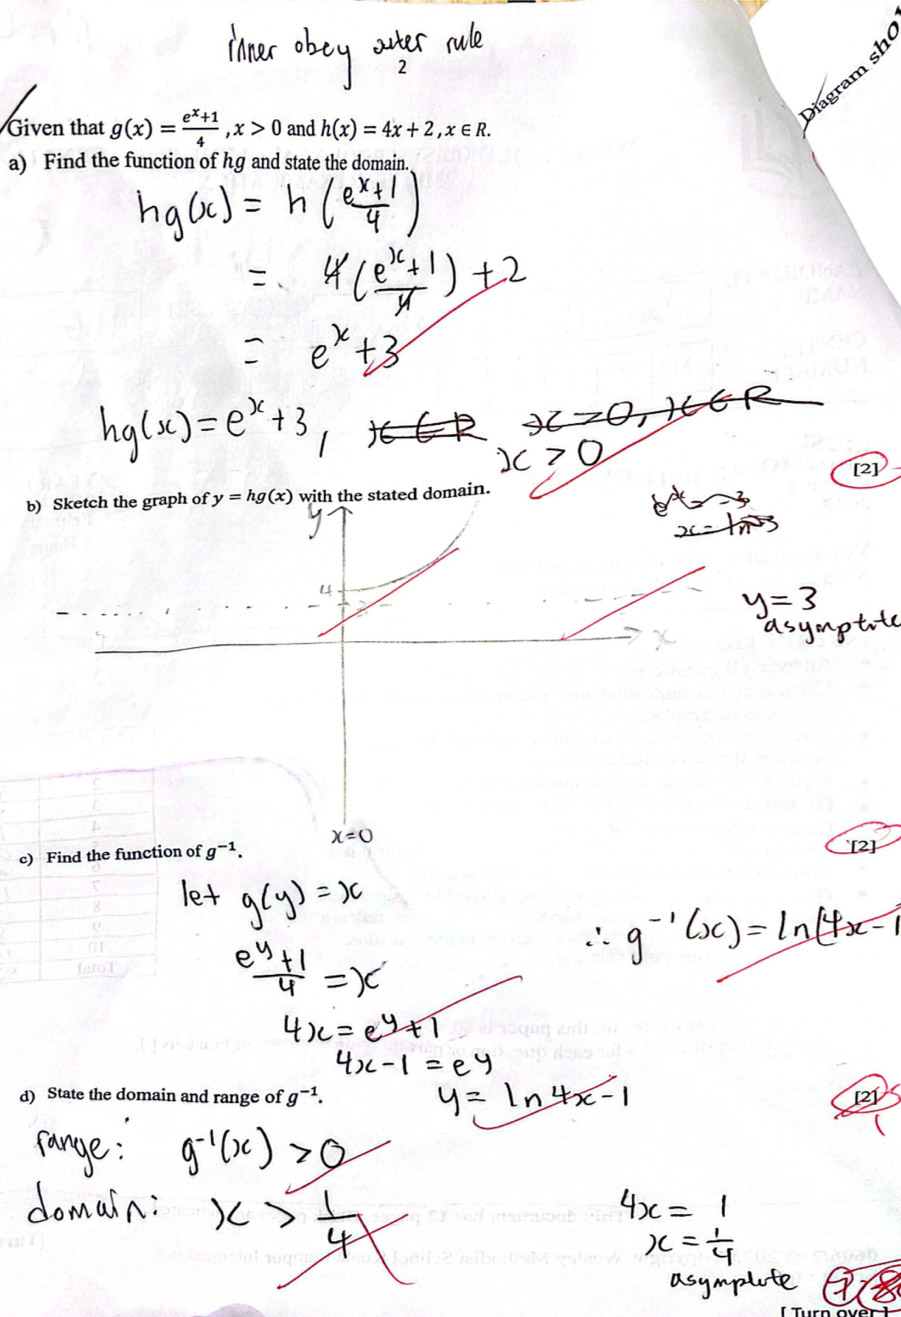 inner obey outer rule
2
Diagram sho
Given that g(x) = \frac{e^x+1}{4}, x > 0 and h(x) = 4x + 2, x ∈ R.
a) Find the function of hg and state the domain.
hg(x) = h(\frac{e^x+1}{4})
= 4(\frac{e^x+1}{4}) + 2
= e^x + 3
hg(x) = e^x + 3, x ∈ R x > 0, x ∈ R
x > 0
[2]
b) Sketch the graph of y = hg(x) with the stated domain.
e^x = -3
x = ln -3
y
4
3
x
y = 3
asymptote
x=0
c) Find the function of g⁻¹.
[2]
let g(y) = x
\frac{e^y+1}{4} = x
4x = e^y + 1
4x - 1 = e^y
y = ln 4x - 1
∴ g⁻¹(x) = ln(4x - 1
d) State the domain and range of g⁻¹.
[2]
1
range: g⁻¹(x) > 0
domain: x > \frac{1}{4}
4x = 1
x = \frac{1}{4}
asymptote
[ Turn over ]